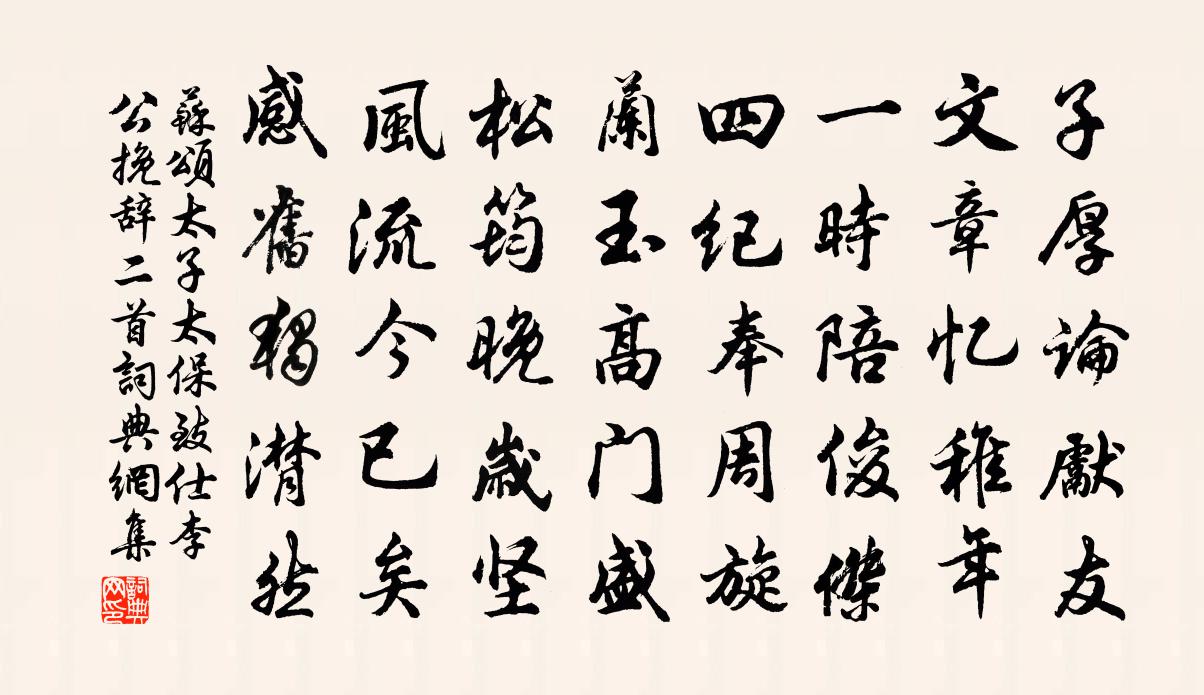 子厚論獻友
文章忆稚年
一時陪俊傑
四纪奉周旋
蘭玉高门盛
松筠晚歲坚
風流今已矣
感舊獨潸然
蘇頌太子太保致仕李
公挽辞二首詞典網集
詞典网印